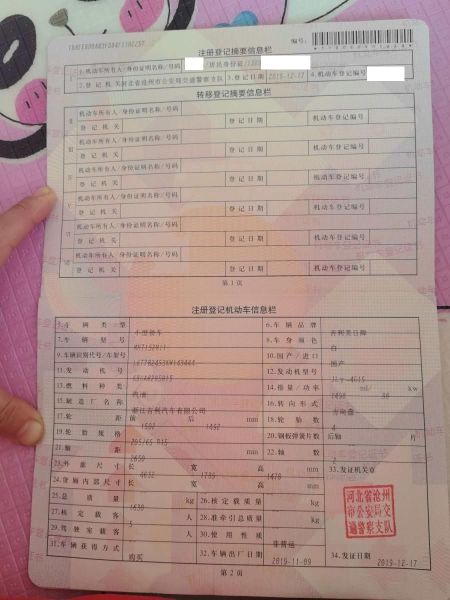 注册登记摘要信息栏
编号:
1.机动车所有人/身份证明名称/号码 /居民身份证/
2.登记机关 河北省沧州市公安局交通警察支队 3.登记日期 2019-12-17 4.机动车登记编号
转移登记摘要信息栏
机动车所有人/身份证明名称/号码
登记机关 登记日期 机动车登记编号
机动车所有人/身份证明名称/号码
登记机关 登记日期 机动车登记编号
机动车所有人/身份证明名称/号码
登记机关 登记日期 机动车登记编号
机动车所有人/身份证明名称/号码
登记机关 登记日期 机动车登记编号
机动车所有人/身份证明名称/号码
登记机关 登记日期 机动车登记编号
机动车所有人/身份证明名称/号码
登记机关 登记日期 机动车登记编号
第1页
注册登记机动车信息栏
5.车辆类型 小型轿车 6.车辆品牌 吉利美日牌
7.车辆型号 8.车身颜色 白
9.车辆识别代号/车架号 10.国产/进口 国产
11.发动机号 12.发动机型号 JLγ-4G15
13.燃料种类 汽油 14.排量/功率 1498 ml/ kw
15.制造厂名称 浙江吉利汽车有限公司 16.转向形式 方向盘
17.轮距 前 1502 后 1492 mm 18.轮胎数 4
19.轮胎规格 205/65 R15 20.钢板弹簧片数 后轴 片
21.轴距 2650 mm 22.轴数 2
23.外廓尺寸 长 4632 宽 1789 高 1470 mm 33.发证机关章
24.货厢内部尺寸 长 宽 高 mm
25.总质量 1630 kg 26.核定载质量 kg
27.核定载客 5 人 28.准牵引总质量 kg
29.驾驶室载客 人 30.使用性质 非营运
31.车辆获得方式 购买 32.车辆出厂日期 2019-11-09 34.发证日期 2019-12-17
河北省沧州市公安局交通警察支队
第2页